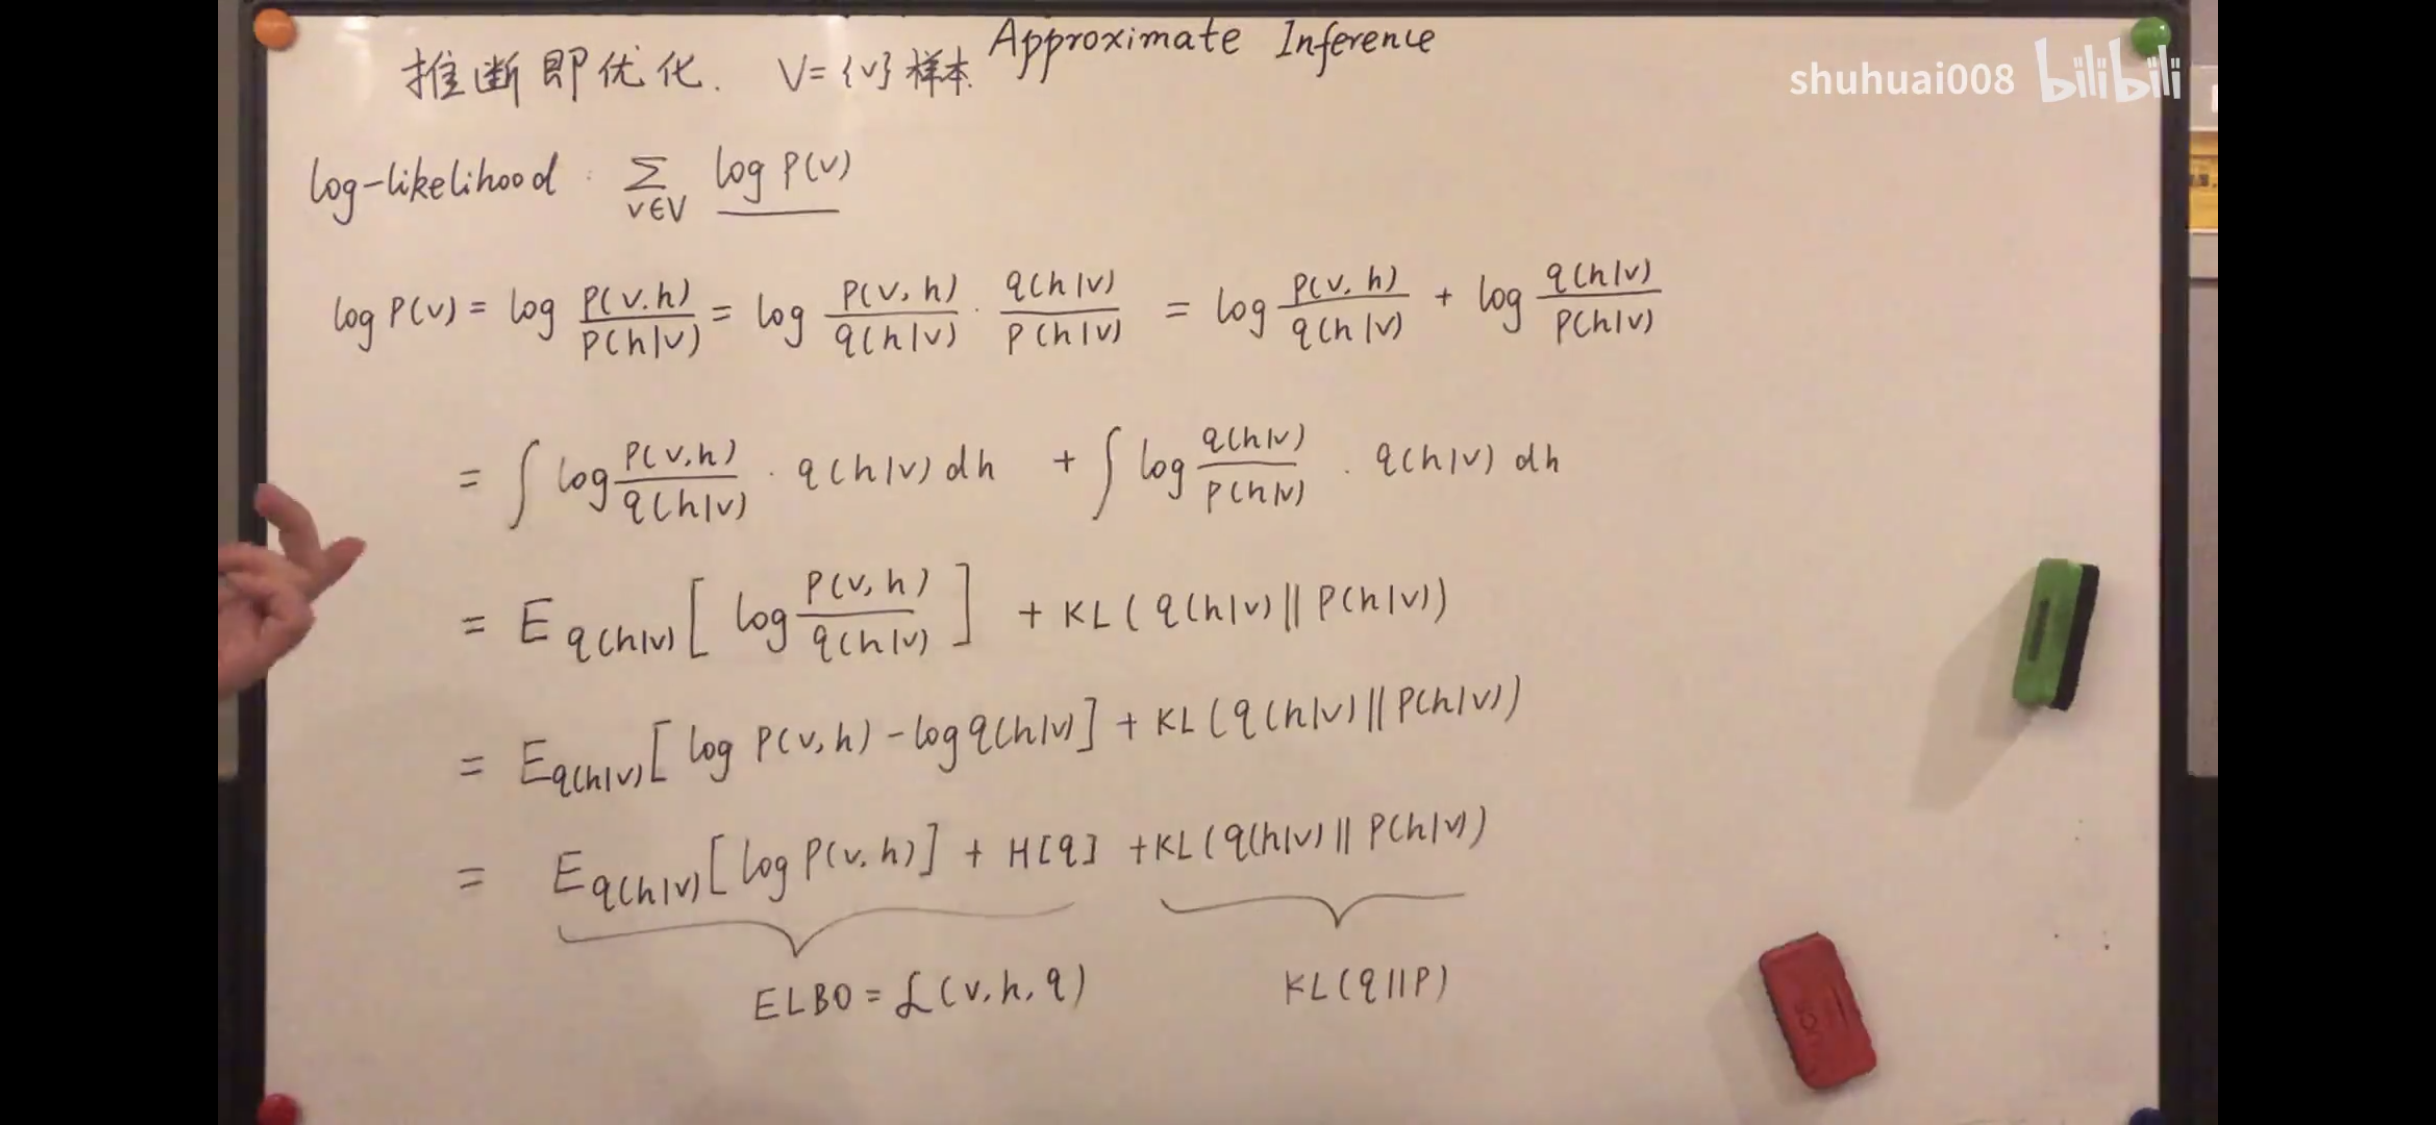 Approximate Inference
推断即优化. V={v}样本.
shuhuai008 bilibili
log-likelihood: ∑_{v∈V} log P(v)
log P(v) = log \frac{P(v,h)}{P(h|v)} = log \frac{P(v,h)}{q(h|v)} · \frac{q(h|v)}{P(h|v)} = log \frac{P(v,h)}{q(h|v)} + log \frac{q(h|v)}{P(h|v)}
= ∫ log \frac{P(v,h)}{q(h|v)} · q(h|v) dh + ∫ log \frac{q(h|v)}{P(h|v)} · q(h|v) dh
= E_{q(h|v)} [ log \frac{P(v,h)}{q(h|v)} ] + KL(q(h|v) || P(h|v))
= E_{q(h|v)} [ log P(v,h) - log q(h|v) ] + KL(q(h|v) || P(h|v))
= E_{q(h|v)} [ log P(v,h) ] + H[q] + KL(q(h|v) || P(h|v))
ELBO = ℒ(v,h,q) KL(q||P)